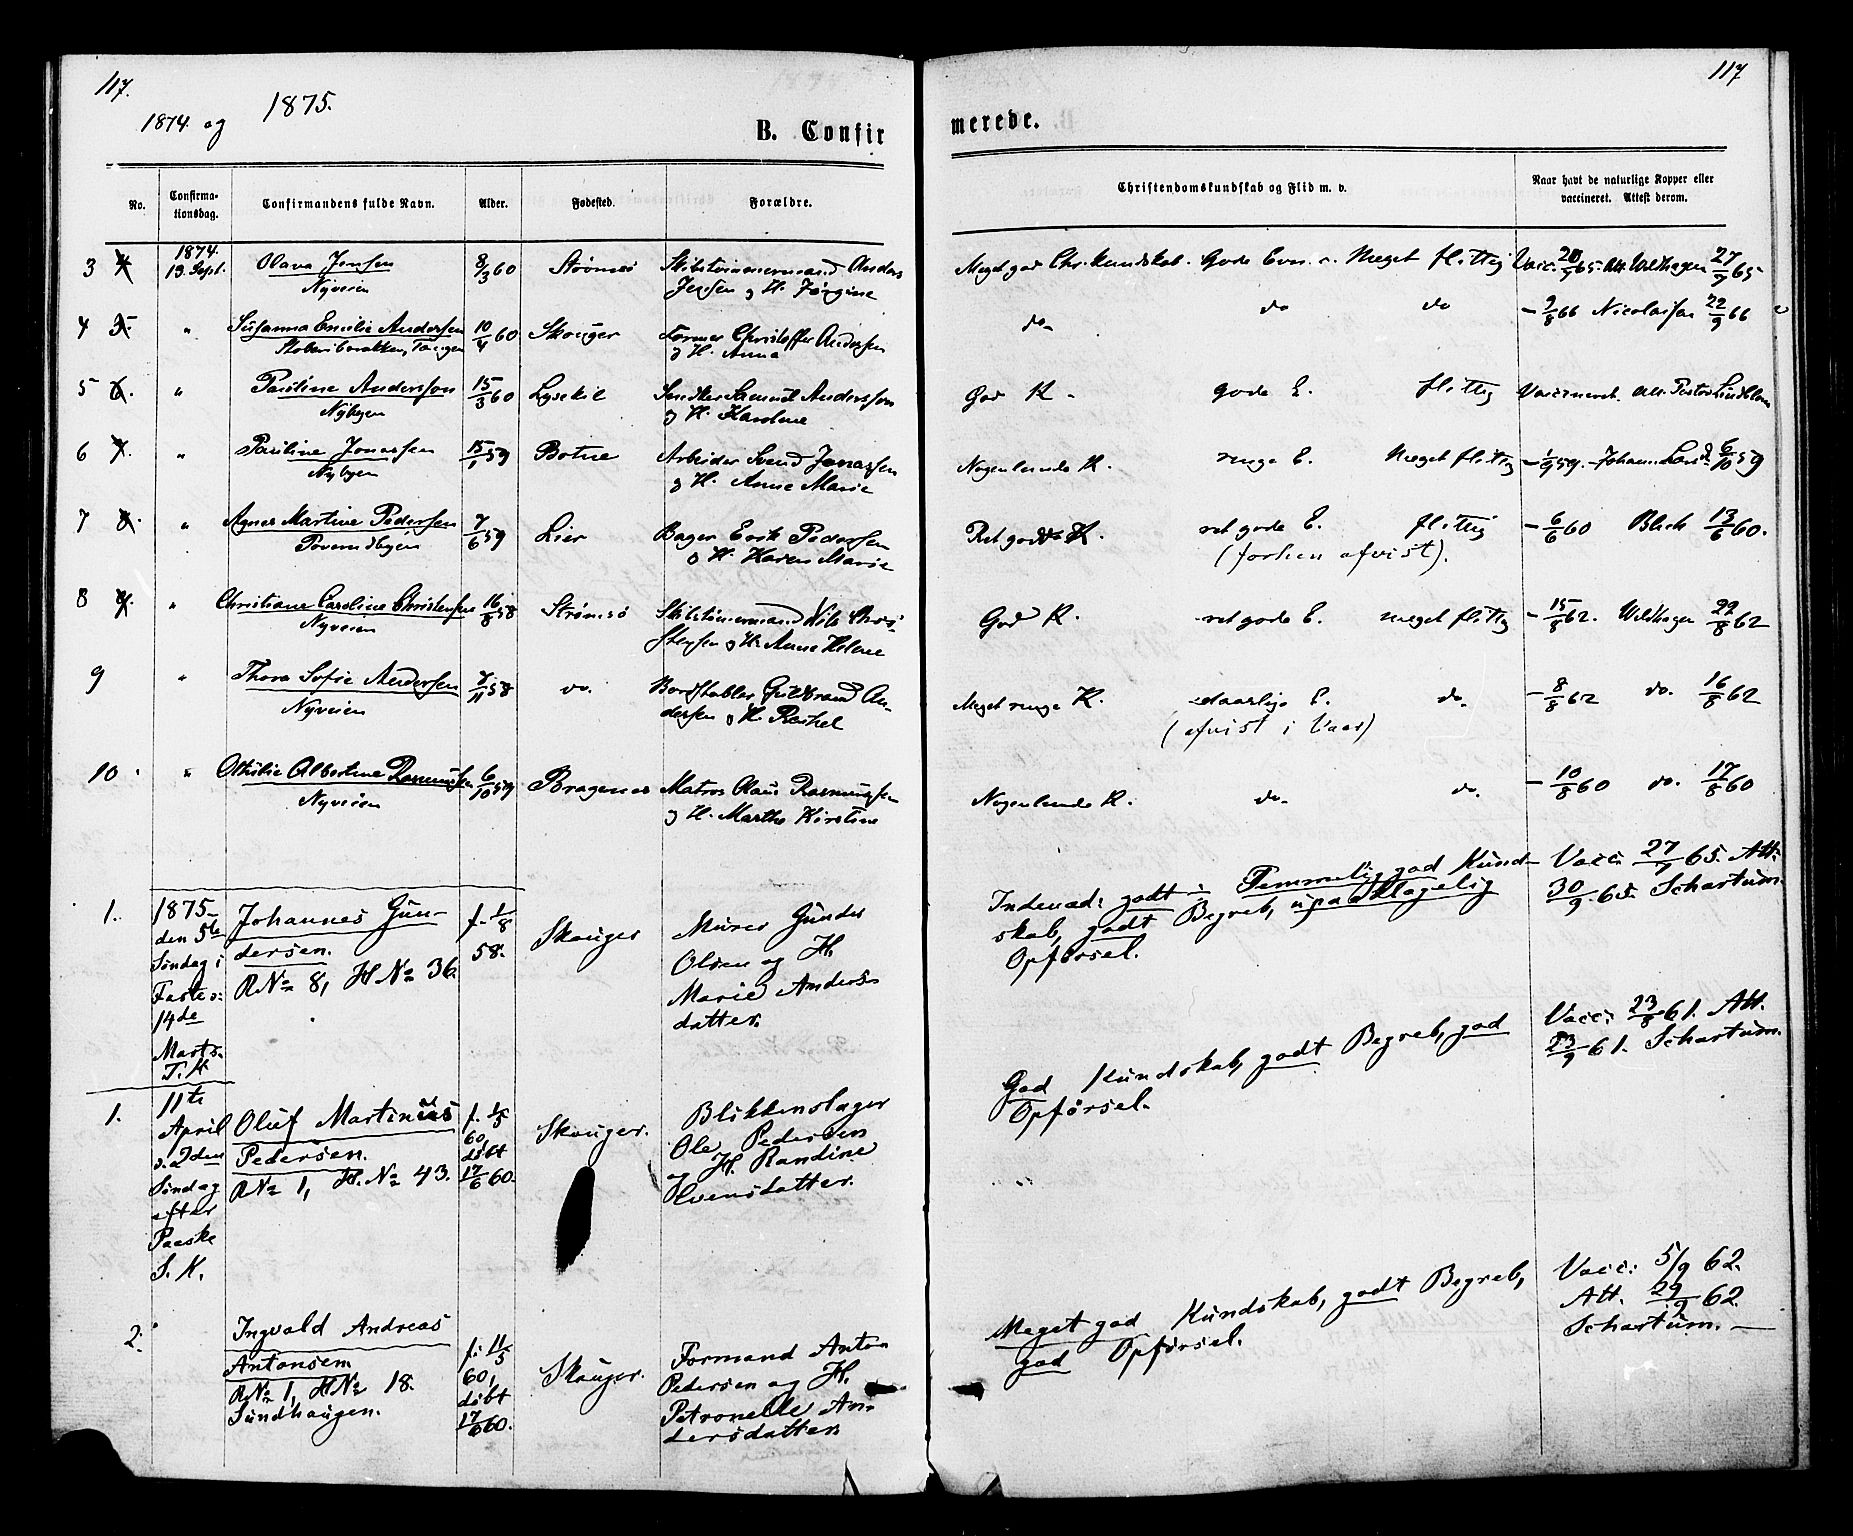 117.
117
1874. og 1875.
B. Confirmerede.
No.
Confirmationsdag.
Confirmandens fulde Navn.
Alder.
Fødested.
Forældre.
Christendomskundskab og Flid m. v.
Naar havt de naturlige Kopper eller vaccineret. Attest derom.
3 4. 1874. 13. Sept. Olava Jensen 8/3 60 Strømsø Skibstømmermand Anders Meget god Chr. kundskab. Gode Evn. Meget flittig Vacc. 65. Att. Weldhagen 27/9 65
Nyveien Jensen og H. Jørgine
4 5. " Susanna Emilie Andersen 10/4 60 Skouger Former Christoffer Andersen do do do - 9/8 66 Nicolaisen 22/9 66
Tangen og H. Anna
5 6. " Pauline Andersson 15/3 60 Lysekil Snedker Samuel Andersson God K. gode E. flittig Vaccineret. Att. Pastor Lindblom
Nybyen og H. Karolene
6 7. " Pauline Jonassen 15/1 59 Botne Arbeider Svend Jonassen Nogenlunde K. ringe E. Meget flittig - 1/9 59. Johann 6/10 59
Nybyen og H. Anne Marie
7 8. " Agnes Martine Pedersen 7/6 59 Lier Bager Erik Pedersen Ret god K. ret gode E. flittig - 6/6 60 Blich 13/6 60.
og H. Karen Marie (forhen afvist).
8 9. " Christiane Caroline Christensen 16/8 58 Strømsø Skibstømmermand Nils Chri- God K. ret gode E. meget flittig - 15/8 62. Weldhagen 22/8 62
Nyveien stensen og H. Anne Helene
9 " Thora Sofie Andersen 7/11 58 do. Bordstabler Guldbrand An- Meget ringe K. daarlige E. do. - 8/8 62 do. 16/8 62
Nyveien dersen og H. Rachel (afvist i Vaar)
10 " Othilie Albertine Rasmussen 6/10 59 Bragenes Matros Olaus Rasmussen Nogenlunde K. do. do. - 10/8 60 do. 17/8 60
Nyveien og H. Marthe Kirstine
1. 1875 den 5te Søndag i Faste: 14de Marts. T. K
Johannes Gun-
dersen.
R No 8, H No 36.
f. 1/8
58.
Skouger
Murer Gunder
Olsen og H.
Marie Anders-
datter.
Indenad: godt i Temmelig god Kund-
skab, godt Begreb, upaaklagelig
Opførsel.
Vacc: 27/9 65. Att:
30/9 65. Schartum.
1. 11te
April
s. 2den
Søndag
efter
Paaske
S. K.
Oluf Martinius
Pedersen.
R No 1, H. No 43.
f. 1/5
60,
døbt
17/6 60.
Skouger.
Blikkenslager
Ole Pedersen
og H. Randine
Ivensdatter.
God Kundskab, godt Begreb, god
Opførsel.
Vacc: 23/8 61. Att.
23/9 61. Schartum.
2.
Ingvald Andreas
Antonsen
R No 1, H No 18.
Sundhaugen.
f: 11/5
60,
døbt
17/6 60.
Skouger.
Formand Anton
Pedersen og H.
Petronelle An-
dersdatter.
Meget god Kundskab, godt Begreb,
god Opførsel.
Vacc: 5/9 62.
Att. 29/9 62.
Schartum.